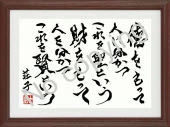 徳をもって
人に分かつ
これを聖という
財をもって
人に分かつ
これを賢という
荘子